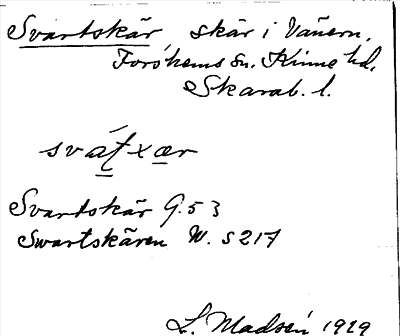 Svartskär skär i Vänern,
Forshems sn. Kinne hd.
Skarab. l.
svát x ær
Svartskär G. 53
Swartskären W. S 217
L. Madsén 1929